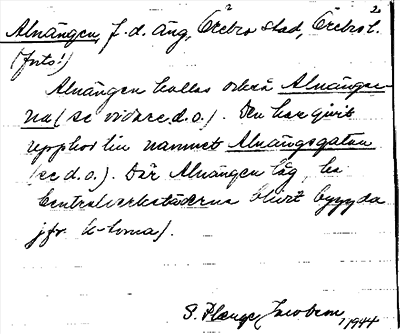 Alnängen, f. d. äng, Örebro stad, Örebro l.
(forts!)
Alnängen kallas också Alnängar-
na (se vidare d. o.). Den har givit
upphov till namnet Alnängsgatan
(se d. o.). Där Alnängen låg, ha
Centralverkstäderna blivit byggda
jfr k-torna).
S. 1944